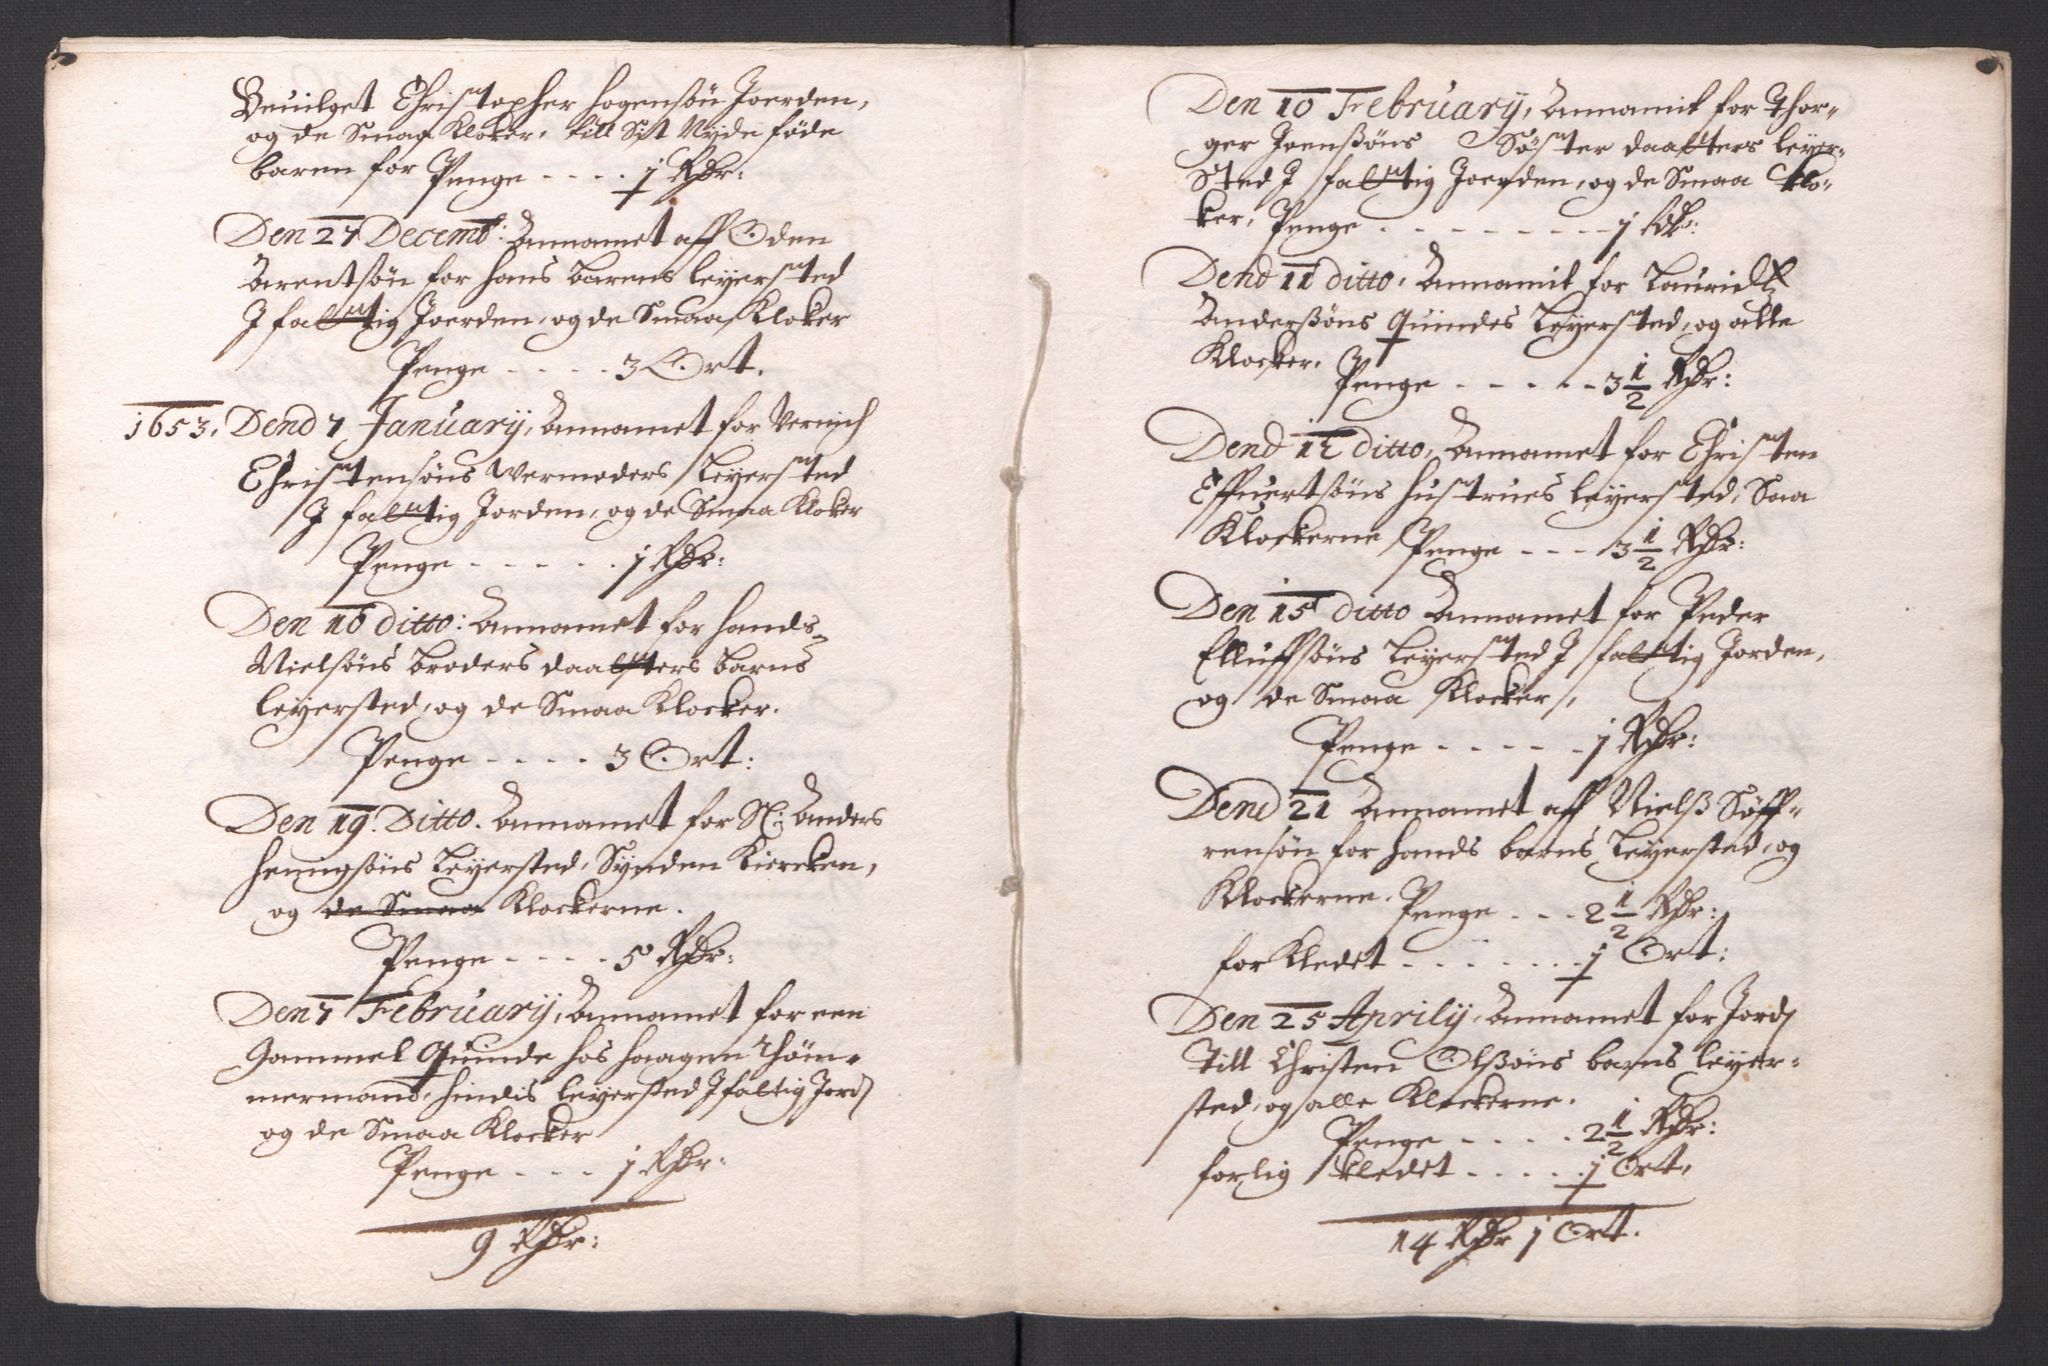 Beuilget Christopher hogensøn Joerden,
og de Smaa Kloker, till Sit Nyde føde
baren for Penge - - - - 1 Rdr:
Den 27 Decemb: Annamet aff Oden
Arentsøn for hans barens leyersted
J faltig Joerden, og de Smaa Kloker
Penge - - - - 3 Ort.
1653. Dend 7 January, Annamet for Vernich
Christensøns Wermoders Leyersted
J faltig Jorden, og de Smaa Kloker
Penge - - - - - 1 Rdr:
Den 16 ditto: Annamet for hands
Nielsøns broders daatters barns
leyersted, og de Smaa Klocker.
Penge - - - - 3 Ort:
Den 19. Ditto. Annamet for Sl: Anders
henngsøns Leyersted, Synden Kiercken,
og de Smaa Klockerne.
Penge - - - - 5 Rdr:
Den 7 February, Annamet for een
Gammel Quinde hos haagen Thøm-
mermand, hindis leyersted J faltig Jord
og de Smaa Klocker
Penge - - - 1 Rdr:
9 Rdr:
Den 10 February, Annamit for Thor-
ger Joensøns Søster daatters leyer-
Sted J faltig Joerden, og de Smaa Klo-
ker, Penge - - - - - - - - 1 Rdr:
Dend 11 ditto, Annamit for Lauridtz
Anderssøns Quindes Leyersted, og alle
Klocker. Penge - - - - - 3 1/2 Rdr:
Dend 12 ditto, Annamet for Christen
Effuertsøns hustrues leyersted, Saa
Klockerne Penge - - - 3 1/2 Rdr:
Den 15 ditto Annamet for Peder
Elluffsøns Leyersted J faltig Jorden,
og de Smaa Klocker,
Penge - - - - - 1 Rdr:
Dend 21 Annamet aff Nielß Søff-
rensøn for hands barns Leyersted, og
Klockerne. Penge - - - 2 1/2 Rdr:
for Kledet - - - - - - - 1 Ort:
Den 25 Aprily, Annamet for Jord
till Christen Olßøns barns leyer-
sted, og alle Klockerne.
Penge - - - - 2 1/2 Rdr:
forlig kledet - - - - - 1 Ort,
14 Rdr 1 Ort.